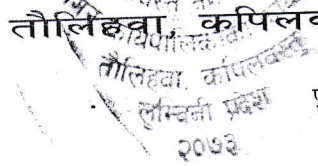 तौलिहवा, कपिलव
तौलिहवा, कपिलवस्तु
लुम्बिनी प्रदेश
२०७३